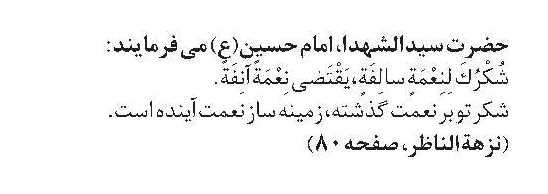 حضرت سیدالشهدا، امام حسین(ع) می فرمایند:
شُكْرُكَ لِنِعْمَةٍ سالِفَةٍ، يَقْتَضى نِعْمَةً آنِفَةً.
شکر تو بر نعمت گذشته، زمینه ساز نعمت آینده است.
(نزهة الناظر، صفحه ۸۰)